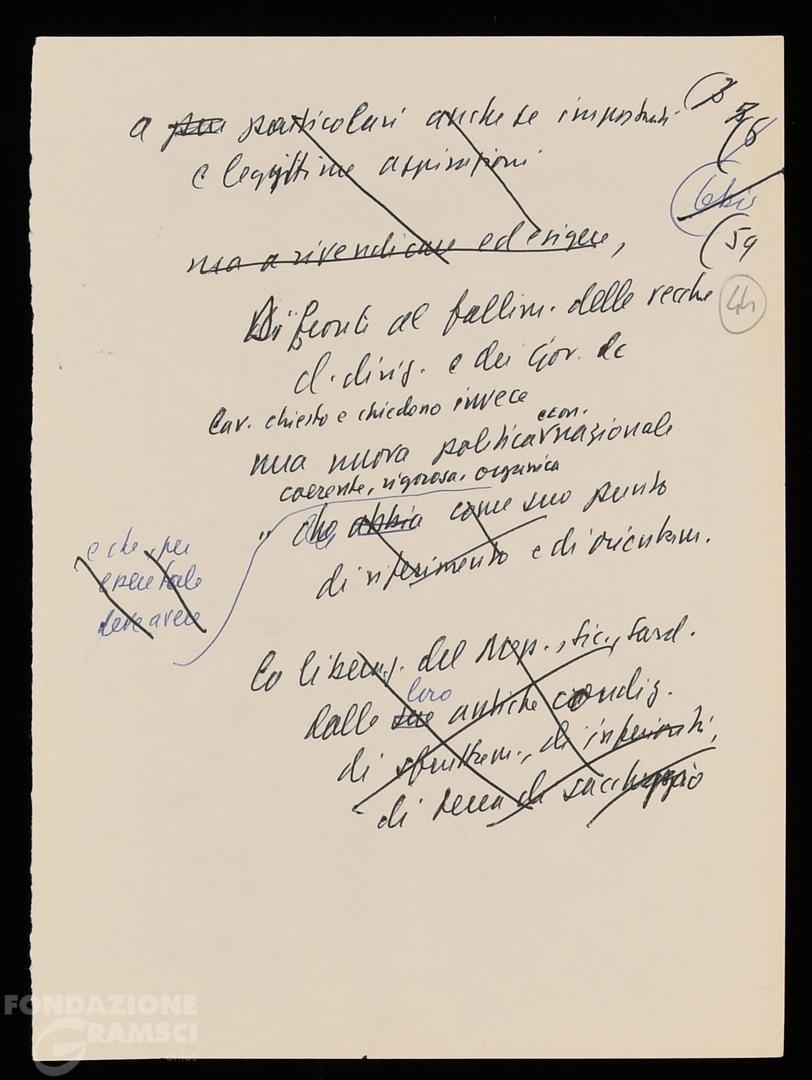 a particolari anche se importanti
e legittime aspirazioni
ma a rivendicare ed esigere,
Di fronte al fallim. delle vecchie
cl. dirig. e dei Gov. dc
Lav. chiesto e chiedono invece
econ.
una nuova politica nazionale
coerente, rigorosa, organica
che abbia come suo punto
di riferimento e di orientam.
e che, per
essere tale
deve avere
la liberaz. del Mezz., Sic., Sard.
loro
dalle sue antiche condiz.
di sfruttam., di inferiorità,
di terra di saccheggio
6
(6bis
(59
44
FONDAZIONE
GRAMSCI
onlus